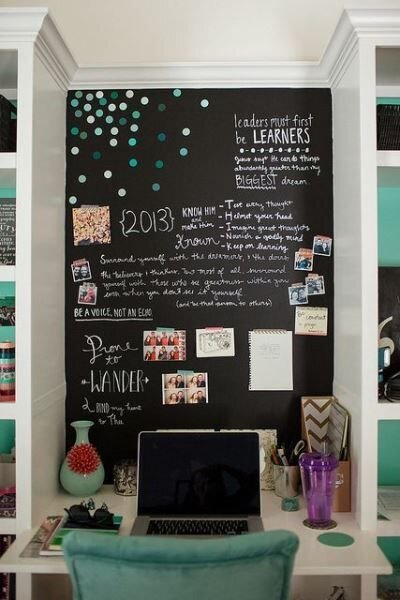 leaders must first
be LEARNERS
Jesus says He can do things
abundantly greater than my
BIGGEST dream.
{2013}
KNOW HIM and
make Him
Known
- Test every thought
- Helmet your head
- Imagine great thoughts
- Nourish a godly mind
- Keep on learning
Surround yourself with the dreamers & the doers
the believers & thinkers, but most of all, surround
yourself with those who see greatness within you
even when you don't see it yourself.
(and be that person to others)
BE A VOICE, NOT AN ECHO.
Prone
to
WANDER
BIND my
to Thee